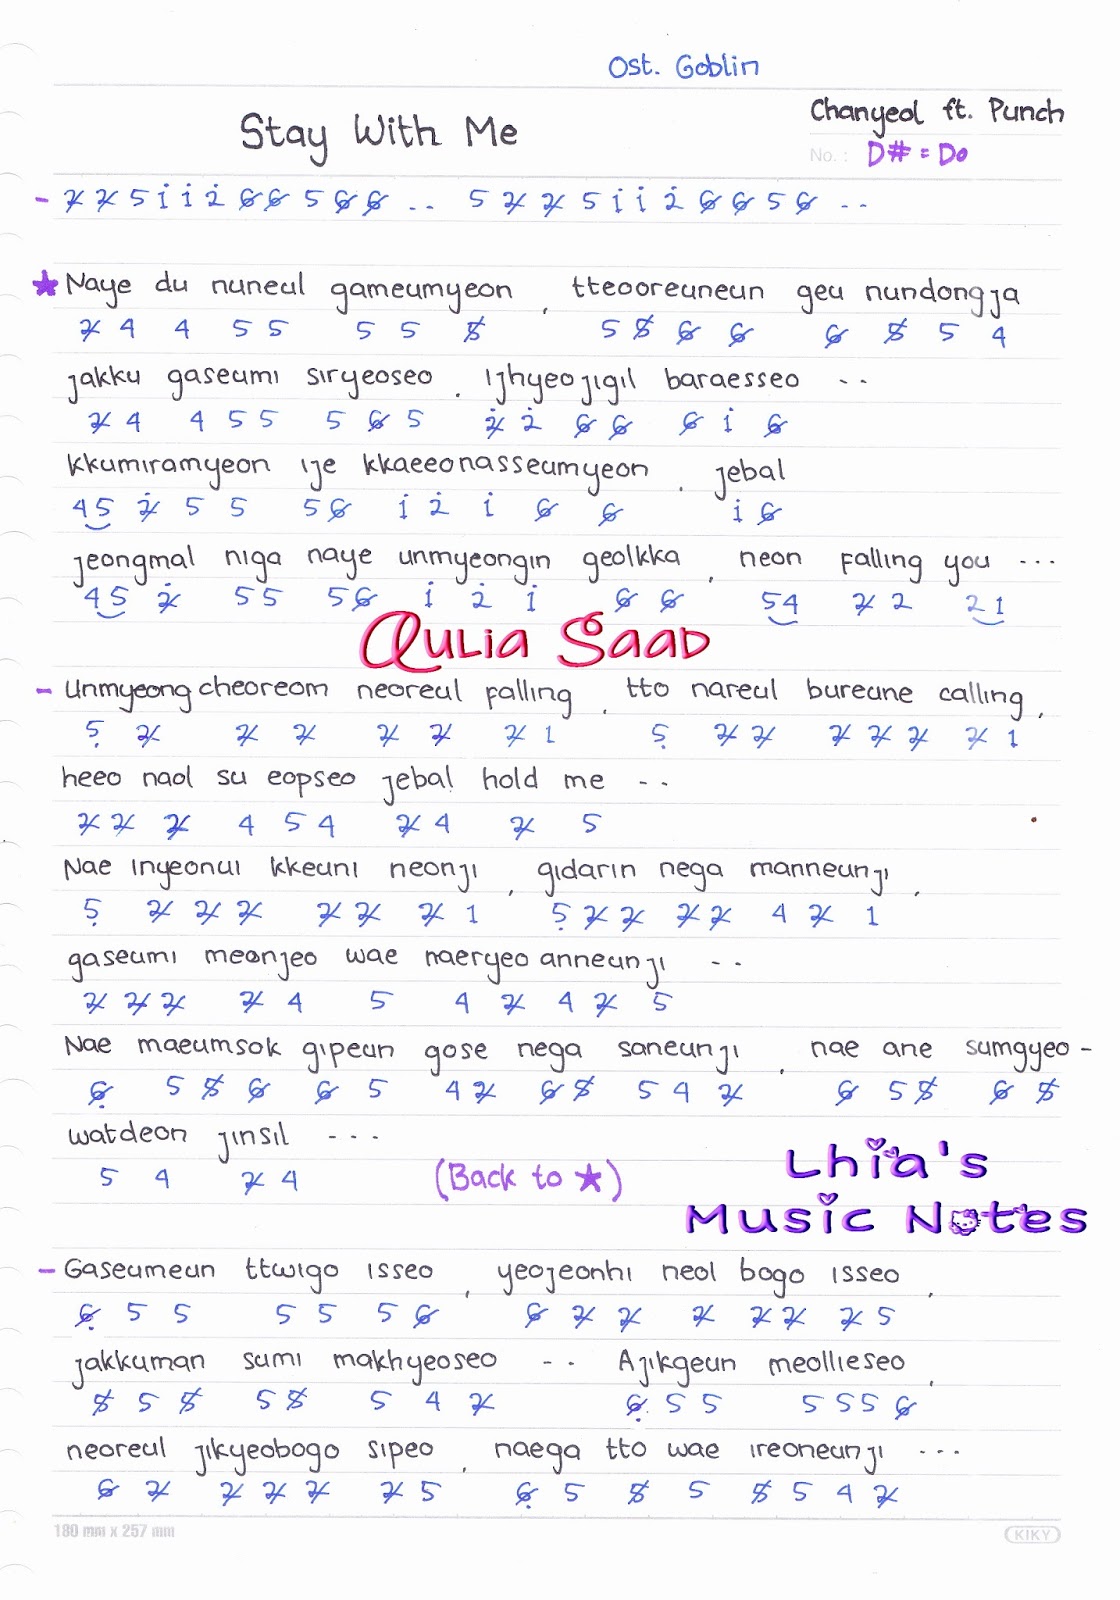 Ost. Goblin
Stay With Me
Chanyeol ft. Punch
No.: D# = Do
- 2̸ 2̸ 5 i i 2̇ 6̸ 6̸ 5 6̸ 6̸ .. 5 2̸ 2̸ 5 i i 2̇ 6̸ 6̸ 5 6̸ ..
★ Naye du nuneul gameumyeon , tteooreuneun geu nundongja
2̸ 4 4 5 5 5 5 5̸ 5 5̸ 6̸ 6̸ 6̸ 5̸ 5 4
jakku gaseumi siryeoseo . ijhyeojigil baraesseo ..
2̸ 4 4 5 5 5 6̸ 5 2̸̇ 2̇ 6̸ 6̸ 6̸ i 6̸
kkumiramyeon ije kkaeeonasseumyeon . jebal
4 5 2̸̇ 5 5 5 6̸ i 2̇ i 6̸ 6̸ i 6̸
jeongmal niga naye unmyeongin geolkka , neon falling you ...
4 5 2̸̇ 5 5 5 6̸ i 2̇ i 6̸ 6̸ 5 4 2̸ 2 2 1
Aulia Saad
- Unmyeong cheoreom neoreul falling , tto nareul bureune calling ,
5̣ 2̸ 2̸ 2̸ 2̸ 2̸ 2̸ 1 5̣ 2̸ 2̸ 2̸ 2̸ 2̸ 2̸ 1
heeo naol su eopseo jebal hold me ..
2̸ 2̸ 2̸ 4 5 4 2̸ 4 2̸ 5
Nae inyeonui kkeuni neonji , gidarin nega manneunji ,
5̣ 2̸ 2̸ 2̸ 2̸ 2̸ 2̸ 1 5̣ 2̸ 2̸ 2̸ 2̸ 4 2̸ 1
gaseumi meonjeo wae naeryeo anneunji ..
2̸ 2̸ 2̸ 2̸ 4 5 4 2̸ 4 2̸ 5
Nae maeumsok gipeun gose nega saneunji , nae ane sumgyeo -
6̸̣ 5 5̸ 6̸ 6̸ 5 4 2̸ 6̸ 5̸ 5 4 2̸ 6̸ 5 5̸ 6̸ 5̸
watdeon jinsil ...
5 4 2̸ 4 (Back to ★)
Lhia's
Music Notes
- Gaseumeun ttwigo isseo , yeojeonhi neol bogo isseo ,
6̸̣ 5 5 5 5 5 6̸ 6̸ 2̸ 2̸ 2̸ 2̸ 2̸ 2̸ 5
jakkuman sumi makhyeoseo .. Ajikgeun meollieseo ,
5̸ 5 5̸ 5 5̸ 5 4 2̸ 6̸̣ 5 5 5 5 5 6̸
neoreul jikyeobogo sipeo , naega tto wae ireoneunji ...
6̸ 2̸ 2̸ 2̸ 2̸ 2̸ 5 6̸̣ 5 5̸ 5 5̸ 5 4 2̸
180 mm x 257 mm
KIKY